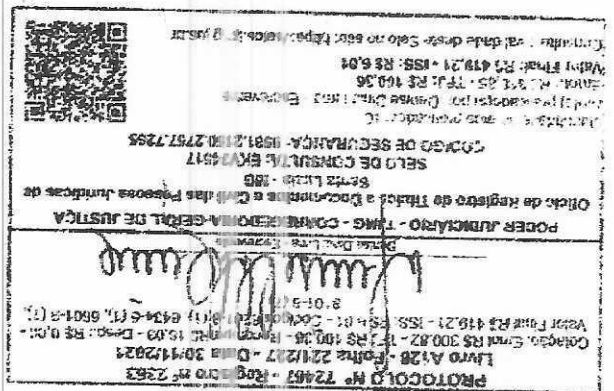 PROTOCOLO Nº 72467 - Registro nº 2363
Livro A126 - Folha 221/227 - Data 30/11/2021
Cotação: Emol R$ 300,82 - TFJ R$ 100,36 - Recompe R$ 18,03 - Desp: R$ 0,00 -
Valor Final R$ 419,21 - ISS: R$ 6,01 - Códigos 8101-8 (1), 6434-6 (1), 6601-3 (1),
Denise Diniz Lima - Escrevente
PODER JUDICIÁRIO - TJMG - CORREGEDORIA-GERAL DE JUSTIÇA
Ofício de Registro de Títulos e Documentos e Civil das Pessoas Jurídicas de
Santa Luzia - MG
SELO DE CONSULTA: EKV34517
CÓDIGO DE SEGURANÇA:
Escrevente
TFJ: R$ 100,36
Valor Final: R$ 419,21 - ISS: R$ 6,01
Consulte a validade deste Selo no site: https://selos.tjmg.jus.br